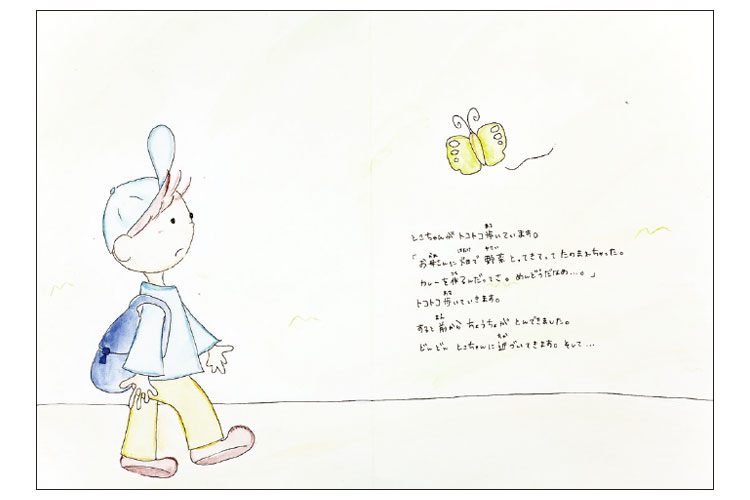 とこちゃんが トコトコ歩いています。
「お母さんに 畑で 野菜 とってきてって たのまれちゃった。
カレーを作るんだってさ。めんどうだなぁ…。」
トコトコ歩いていきます。
すると 前から ちょうちょが とんできました。
どんどん とこちゃんに 近づいてきます。そして…